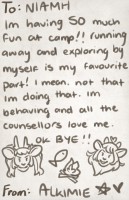 To: NIAMH
Im having SO much
fun at camp!! running
away and exploring by
myself is my favourite
part! I mean. not that
Im doing that. im
behaving and all the
counsellors love me.
OK BYE!!
From: ALKIMIE